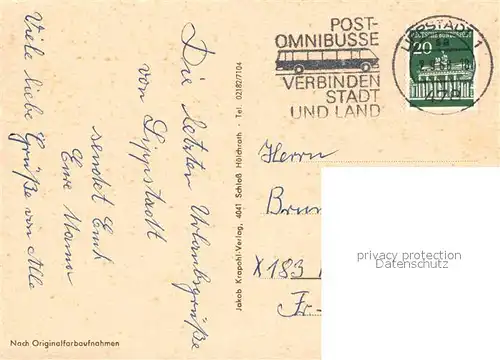 Viele liebe
Grüße von Alle
Die letzten Urlaubsgrüße
von Lippstadt
sendet Euch
Eure Mama
Nach Originalfarbaufnahmen
Jakob Krapohl-Verlag, 4041 Schloß Hülchrath · Tel. 02182/7104
POST-
OMNIBUSSE
VERBINDEN
STADT
UND LAND
LIPPSTADT 1
478
DEUTSCHE BUNDESPOST
20
Herrn
Brun
X183
Fr.-
privacy protection
Datenschutz